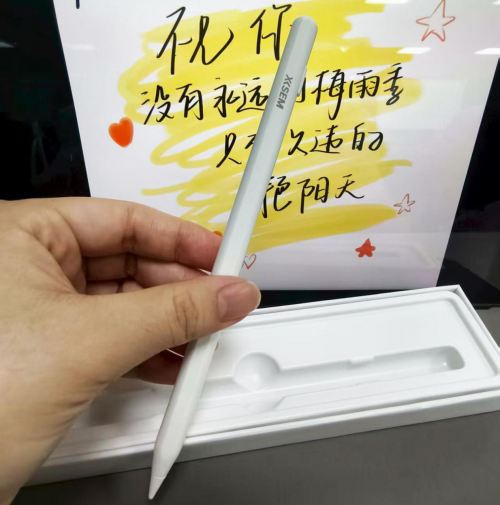 祝你
没有永远的梅雨季
只有久违的
艳阳天
XISEM